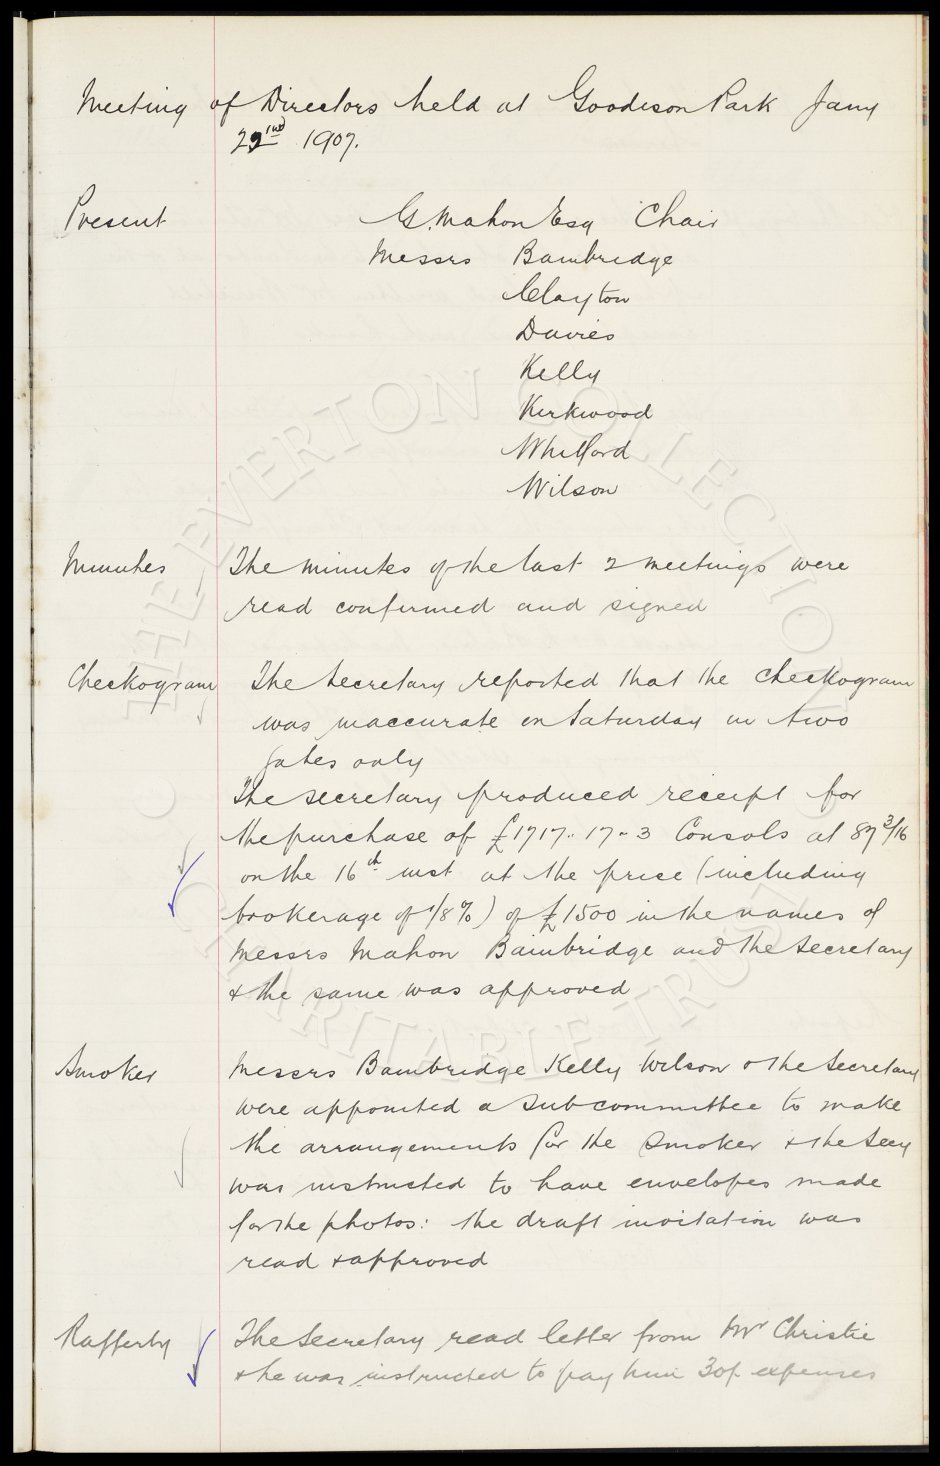 Meeting of Directors held at Goodison Park Jany
22nd 1907.
Present G. Mahon Esq Chair
Messrs Bainbridge
Clayton
Davies
Kelly
Kirkwood
Whitford
Wilson
Minutes The minutes of the last 2 meetings were
read confirmed and signed
Checkogram The Secretary reported that the Checkogram
was inaccurate on Saturday in two
gates only
The Secretary produced receipt for
the purchase of £1717.. 17 - 3 Consols at 87 3/16
on the 16th inst at the price (including
brokerage of 1/8%) of £1500 in the names of
Messrs Mahon Bainbridge and the Secretary
& the same was approved
Smoker Messrs Bainbridge Kelly Wilson & the Secretary
were appointed a Subcommittee to make
the arrangements for the Smoker & the Secy
was instructed to have envelopes made
for the photos: the draft invitation was
read & approved
Rafferty The Secretary read letter from Mr Christie
& he was instructed to pay him 30/- expenses
© THE EVERTON COLLECTION CHARITABLE TRUST